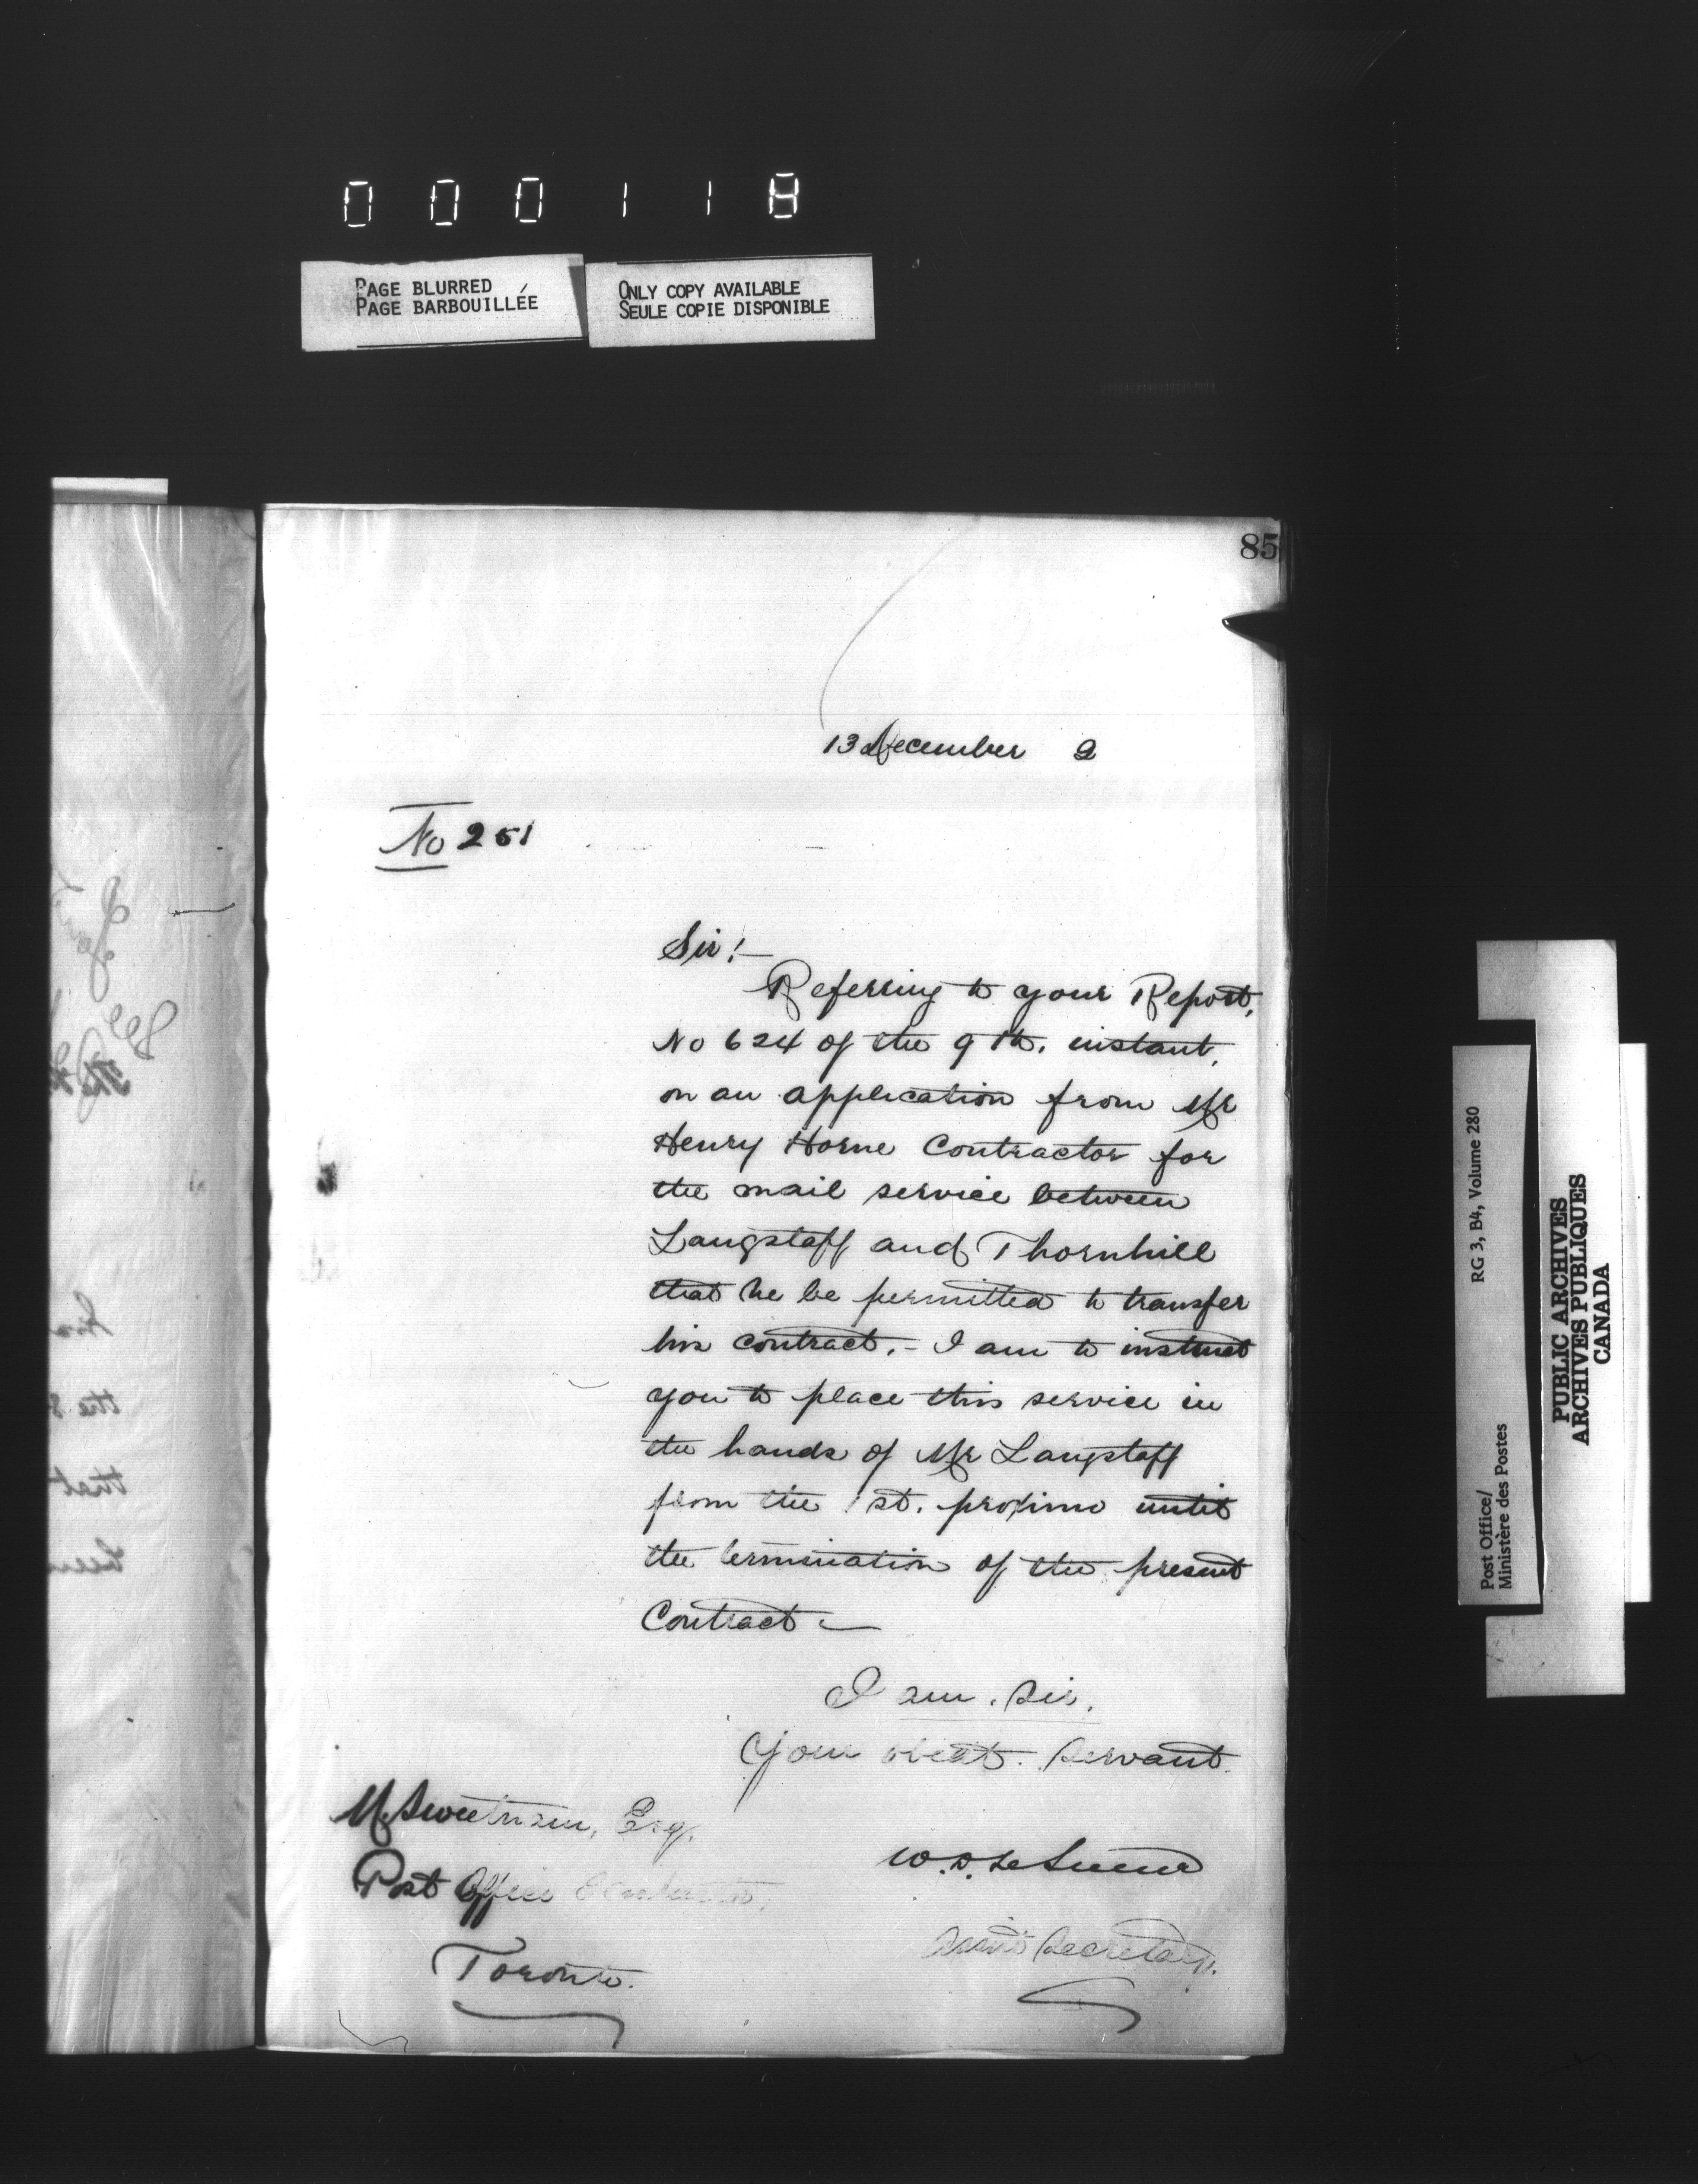 000118
PAGE BLURRED
PAGE BARBOUILLÉE
ONLY COPY AVAILABLE
SEULE COPIE DISPONIBLE
85
13 December 2
No 251
Sir!—
Referring to your Report,
No 624 of the 9th. instant,
on an application from Mr
Henry Horne Contractor for
the mail service between
Langstaff and Thornhill
that he be permitted to transfer
his contract.- I am to instruct
you to place this service in
the hands of Mr Langstaff
from the 1st. proximo until
the termination of the present
Contract—
I am. Sir.
Your obedt. Servant.
M. Sweetnam, Esq.
W.D. LeSueur
Post Office
Secretary.
Toronto.
Post Office/
Ministère des Postes
RG 3, B4, Volume 280
PUBLIC ARCHIVES
ARCHIVES PUBLIQUES
CANADA